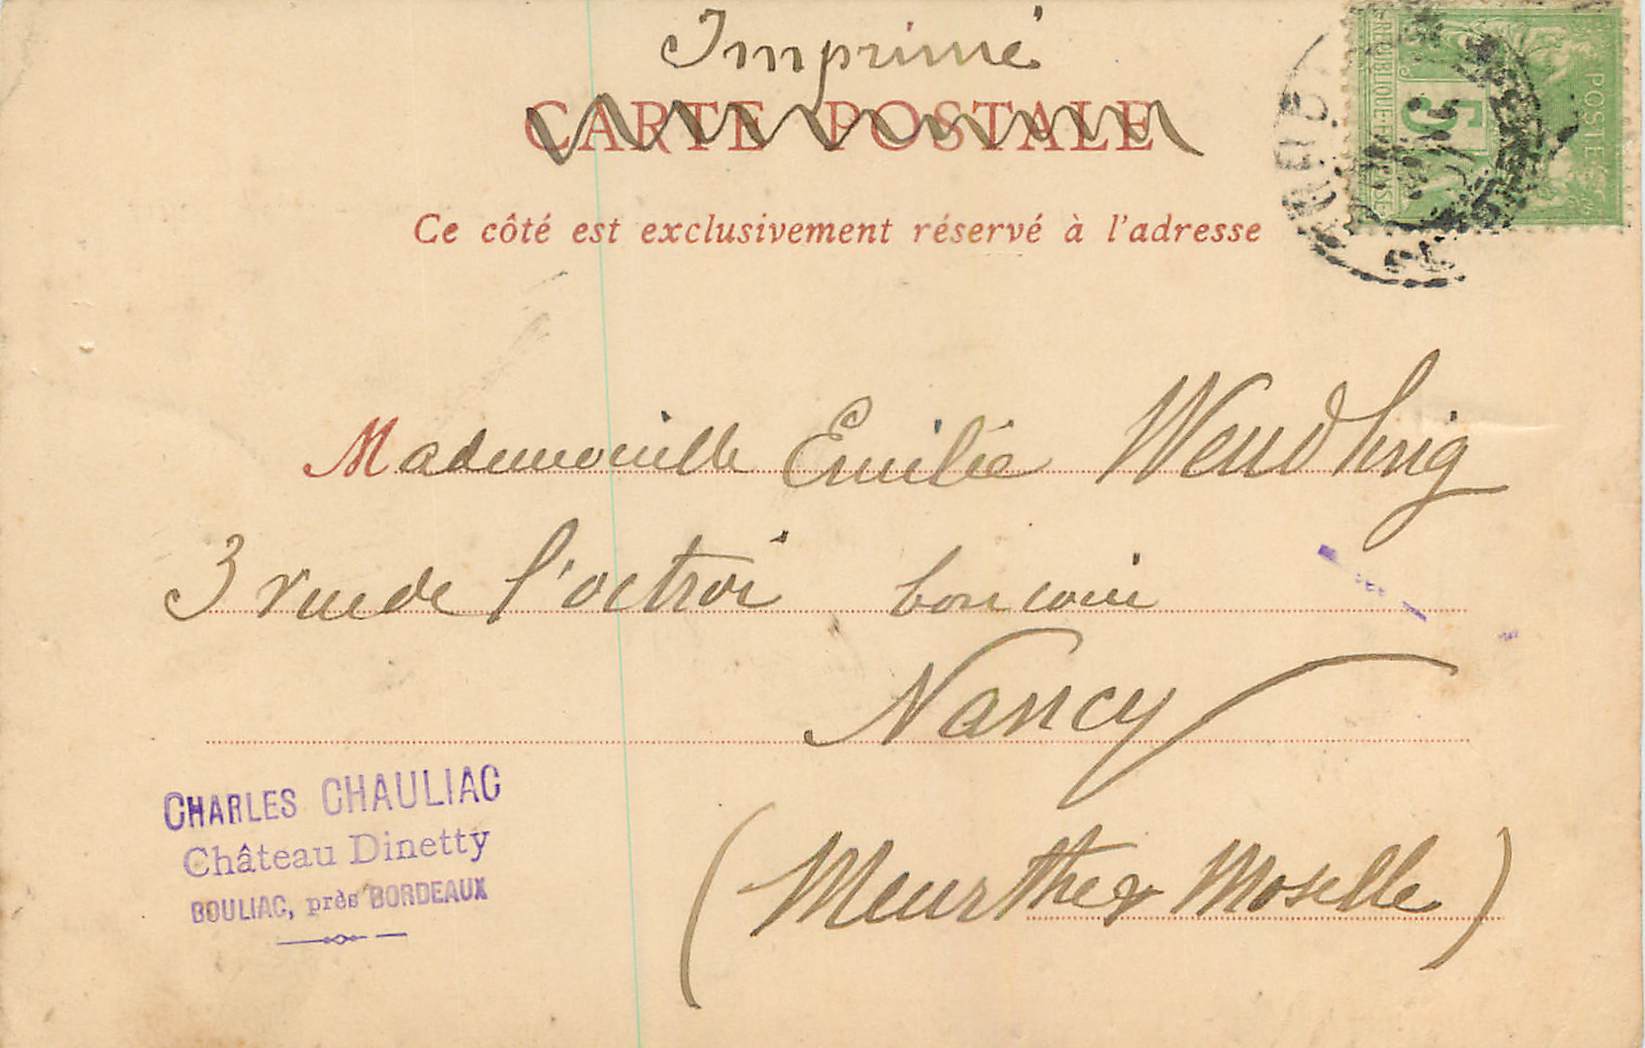 Imprimé
CARTE POSTALE
Ce côté est exclusivement réservé à l'adresse
POSTES
5
Mademoiselle Emilie
3 rue de l'octroi bon coin
Nancy
(Meurthe & Moselle)
CHARLES CHAULIAC
Château Dinetty
BOULIAC, près BORDEAUX